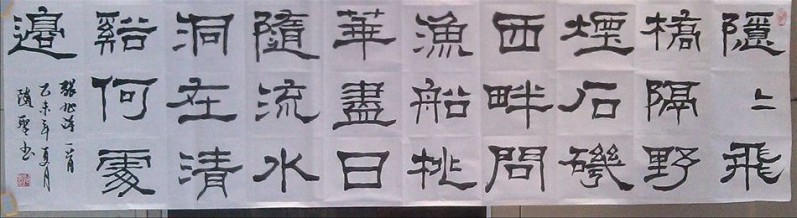 隱〻飛
橋隔野
煙石磯
西畔問
漁船桃
華盡日
隨流水
洞在清
谿何處
邊
張旭诗一首
乙未年夏月
书